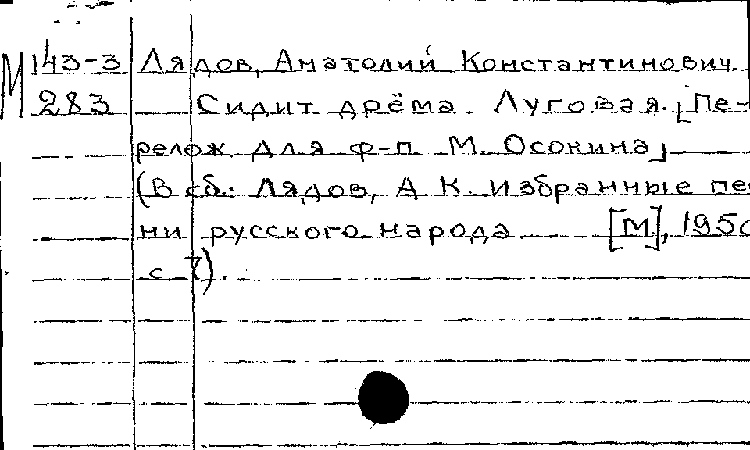 М 143-3 Лядов, Анатолий Константинович
283 Сидит дрёма. Луговая. [Пе-
релож. для ф-п. М. Осокина]
(В сб.: Лядов, А К. избранные пе
ни русского народа [М], 195
с 7).